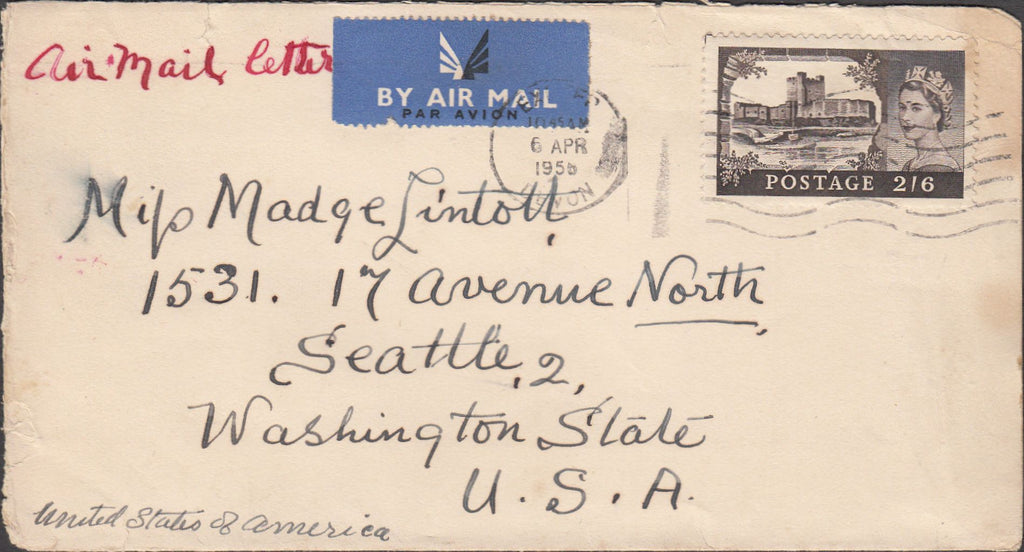 Air Mail letter
BY AIR MAIL
PAR AVION
10 45 AM
6 APR
1956
DEVON
POSTAGE 2/6
Miss Madge Lintott,
1531. 17 Avenue North,
Seattle, 2,
Washington State
U. S. A.
United States of America